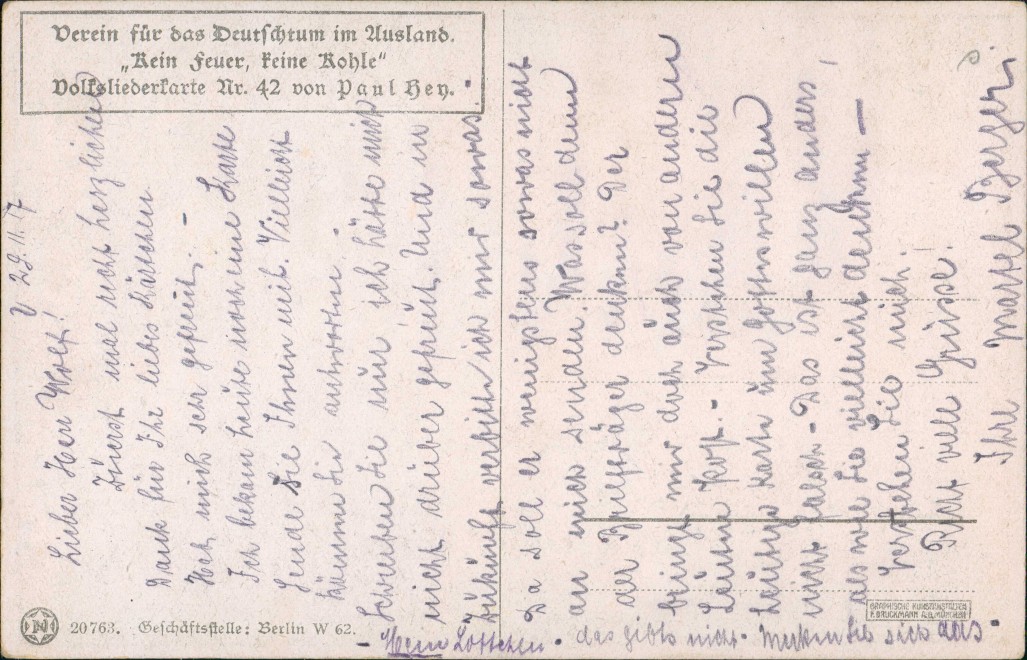 Verein für das Deutschtum im Ausland.
„Kein Feuer, keine Kohle“
Volksliederkarte Nr. 42 von Paul Hey.
29. 11. 17
Lieber Herr Wolf!
Zuerst mal recht herzlichen
Dank für Ihr liebes Kärtchen
Hat mich sehr gefreut. –
Ich bekam heute
Sende Sie Ihnen mit. Vielleicht
können Sie antworten. –
Schreiben Sie nur, ich hätte mich
nicht drüber gefreut. Und in
Zukunft verbitt ich mir sowas.
Da soll er wenigstens sowas nicht
an mich senden. Was soll denn
der Briefträger denken? Der
bringt mir doch auch von anderen
Leuten Post. – Verstehen Sie die
heutige Karte um Gotteswillen
nicht falsch – Das ist ganz anders,
als wie Sie vielleicht denken –
Verstehen Sie mich.
Recht viele Grüsse!
Ihre
Martel Berger.
– Mein Lottchen. das gibts nicht. Merken Sie sich das –
20763. Geschäftsstelle: Berlin W 62.
GRAPHISCHE KUNSTANSTALTEN
F. BRUCKMANN A.G. MÜNCHEN